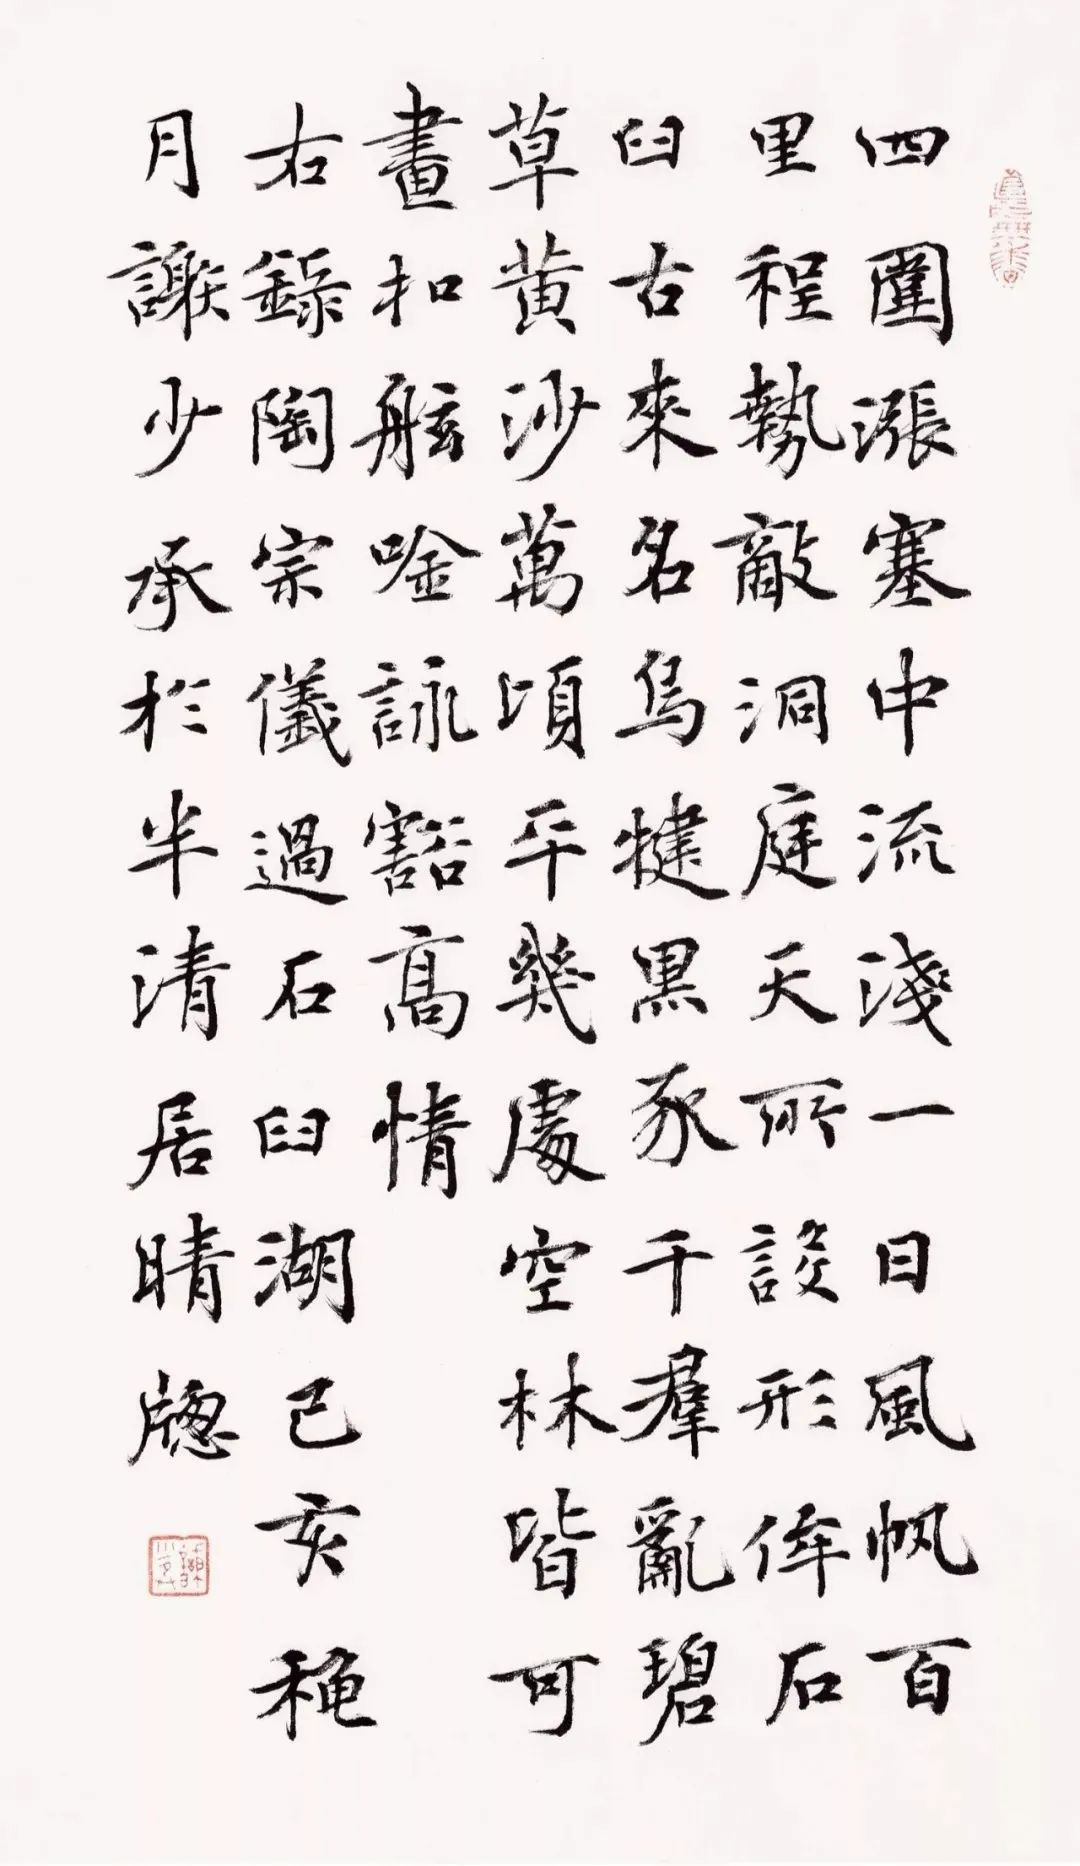 四圍漲塞中流淺一日風帆百
里程勢敵洞庭天所設形侔石
臼古來名烏犍黑豕千羣亂碧
草黄沙萬頃平幾處空林皆可
畫扣舷唫詠豁高情
右錄陶宗儀過石臼湖己亥龝
月謝少承於半清居晴牕